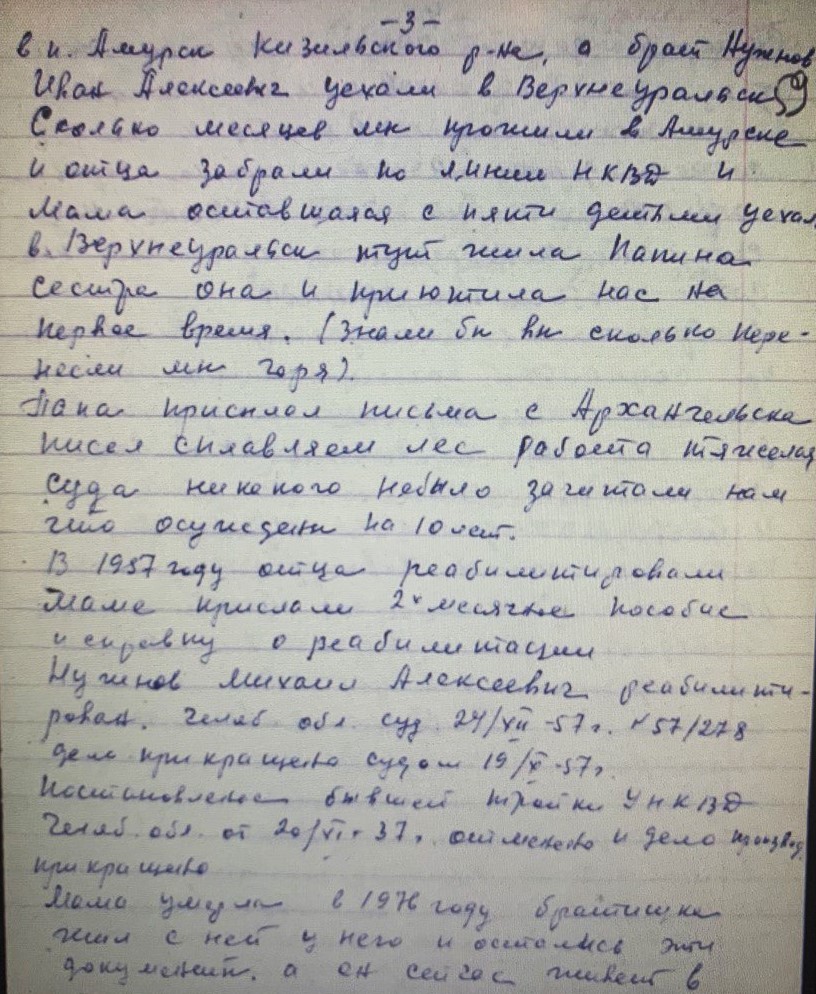 -3-
в п. Амурск Кизильского р-на, а брат Нуженов
Иван Алексеевич уехали в Верхнеуральск
Сколько месяцев мы прожили в Амурске
и отца забрали по линии НКВД и
Мама оставшаяся с пяти детьми уехал
в Верхнеуральск тут жила Папина
сестра она и приютила нас на
первое время. (Знали бы вы сколько пере-
несли мы горя).
Папа прислал письма с Архангельска
писал сплавляем лес работа тяжелая
суда никакого небыло зачитали нам
что осужден на 10 лет.
В 1957 году отца реабилитировали
Маме прислали 2х месячное пособие
и справку о реабилитации
Нуженов Михаил Алексеевич реабилити-
рован. Челяб. обл. суд 24/XII-57г. №57/278
дело прикращено судом 19/X-57г.
Постановление бывшей тройки УНКВД
Челяб. обл. от 20/XI-37г. отменено и дело производ.
прикращено
Мама умерла в 1976 году братишка
жил с ней у него и остались эти
документы, а он сейчас живет в